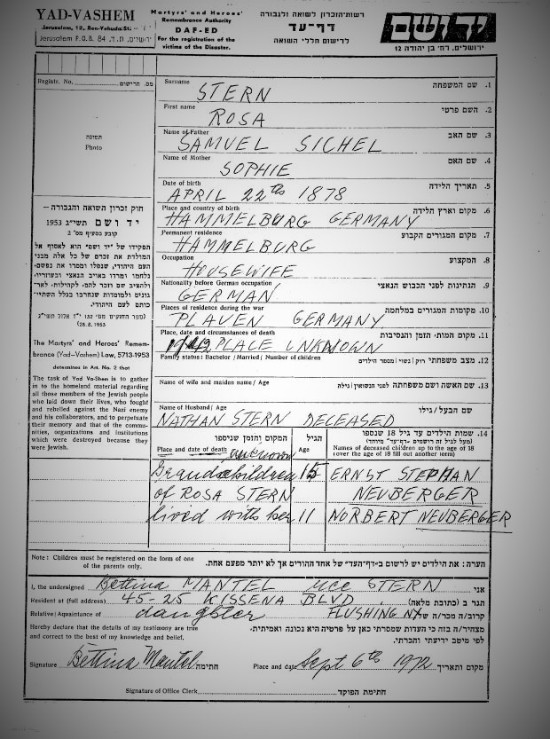 YAD-VASHEM
Martyrs' and Heroes'
Remembrance Authority
Jerusalem, 12, Ben-Yehuda St.
DAF-ED
Jerusalem P.O.B. 84 ירושלים, ת.ד.
For the registration of the
victims of the Disaster.
רשות-הזכרון לשואה ולגבורה
דף-עד
לרישום חללי השואה
יד ושם
ירושלים, רח' בן יהודה 12
Registr. No.
מס. הרישום
תמונה
Photo
חוק זכרון השואה והגבורה -
יד ושם תשי"ג 1953
קובע בסעיף מס' 2
The Martyrs' and Heroes' Remem-
brance (Yad-Vashem) Law, 5713-1953
determines in Art. No. 2 that
The task of Yad Va-Shem is to gather
in to the homeland material regarding
all those members of the Jewish people
who laid down their lives, who fought
and rebelled against the Nazi enemy
and his collaborators, and to perpetuate
their memory and that of the commu-
nities, organizations and institutions
which were destroyed because they
were Jewish.
Surname
1. שם המשפחה
STERN
First name
2. השם פרטי
ROSA
Name of Father
3. שם האב
SAMUEL SICHEL
Name of Mother
4. שם האם
SOPHIE
Date of birth
5. תאריך הלידה
APRIL 22th 1878
Place and country of birth
6. מקום וארץ הלידה
HAMMELBURG GERMANY
Permanent residence
7. מקום המגורים הקבוע
HAMMELBURG
Occupation
8. המקצוע
HOUSEWIFE
Nationality before German occupation
9. נתינות לפני הכבוש הנאצי
GERMAN
Places of residence during the war
10. מקומות המגורים במלחמה
PLAVEN GERMANY
Place, date and circumstances of death
11. מקום המות, הזמן והנסיבות
1942 PLACE UNKNOWN
Family status: Bachelor / Married / Number of children
12. מצב משפחתי
Name of wife and maiden name / Age
13. שם האשה ושם משפחתה לפני הנשואין / גילה
Name of Husband / Age
שם הבעל / גילו
NATHAN STERN DECEASED
14. שמות הילדים עד גיל 18 שניספו
Names of deceased children up to the age of 18
(over the age of 18 fill out another form)
הגיל
Age
המקום והזמן שניספו
Place and date of death
unknown
Grandchildren 15 ERNST STEPHAN
of ROSA STERN NEUBERGER
lived with her 11 NORBERT NEUBERGER
Note: Children must be registered on the form of one
of the parents only.
הערה: את הילדים יש לרשום ב"דף-העד" של אחד ההורים אך לא יותר מפעם אחת.
I, the undersigned Bettina MANTEL nee STERN אני
Resident at (full address) 45-25 KISSENA BLVD הגר ב (כתובת מלאה)
FLUSHING NY
Relative/Aquaintance of daughter קרוב/ה מכר/ה של
Hereby declare that the details of my testimony are true
and correct to the best of my knowledge and belief.
מצהיר/ה בזה כי העדות שמסרתי כאן על פרטיה היא נכונה ואמיתית,
לפי מיטב ידיעתי והכרתי.
Signature Bettina Mantel חתימה
Place and date Sept 6th 1972 מקום ותאריך
Signature of Office Clerk חתימת הפוקד